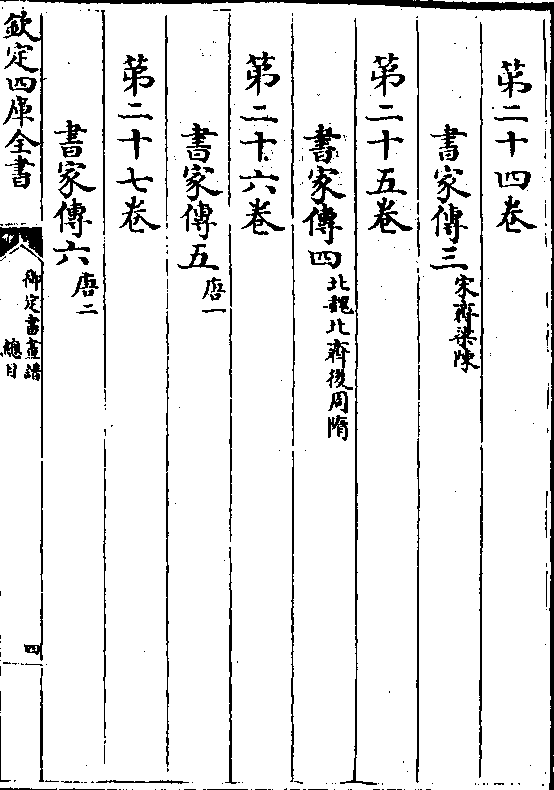 第二十四卷
書家傳三宋齊梁陳
第二十五卷
書家傳四北魏北齊後周隋
第二十六卷
書家傳五唐一
第二十七卷
書家傳六唐二
欽定四庫全書
御定書畫譜
總目
四